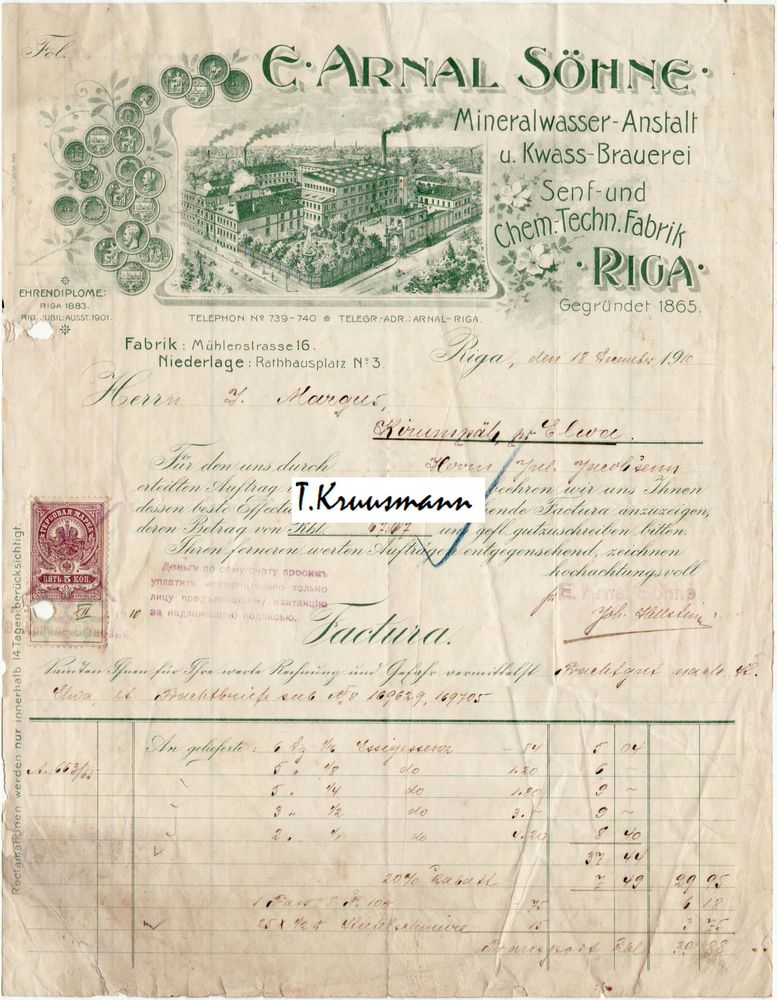 Fol.
E. ARNAL SÖHNE.
Mineralwasser-Anstalt
u. Kwass-Brauerei
Senf- und
Chem.-Techn. Fabrik
RIGA
Gegründet 1865.
EHRENDIPLOME:
RIGA 1883.
RIG. JUBIL-AUSST. 1901.
TELEPHON Nº 739-740 * TELEGR.-ADR.: ARNAL-RIGA.
Fabrik: Mühlenstrasse 16.
Niederlage: Rathhausplatz Nº 3.
Riga, den 18 December 1910
Herrn J. Margus,
Elwa.
Für den uns durch Herrn Jul. Jacobsenn
erteilten Auftrag beehren wir uns Ihnen
T.Kruusmann
dessen beste Effectu ende Factura anzuzeigen,
deren Betrag von Rbl. 67.67 uns gefl. gutzuschreiben bitten.
Ihren ferneren werten Aufträgen entgegensehend, zeichnen
hochachtungsvoll
E. Arnal Söhne
ГЕРБОВАЯ МАРКА
ПЯТЬ 5 КОП.
XII 10
Деньги по сему счету просимъ
уплатить исключительно только
лицу предъявившему квитанцію
за надлежащею подписью.
Factura.
Sandten Ihnen für Ihre werte Rechnung und Gefahr vermittelst Frachtgut nach St.
Elwa, lt. Frachtbriefe sub Nº 169629, 169705
Reclamationen werden nur innerhalb 14 Tagen berücksichtigt.
An gelieferte: 6 Dz 1/16 Essigessenz - 84 5 04
A. 663/65 5 " 1/8 do 1.20 6 ~
5 " 1/4 do 1.80 9 ~
3 " 1/2 do 3.~ 9 ~
2 " 1/1 do 4.20 8 40
37 44
20% Rabatt 7 49 29 95
1 Fass 6 18
25 3 75
Transport Rbl. 39 88